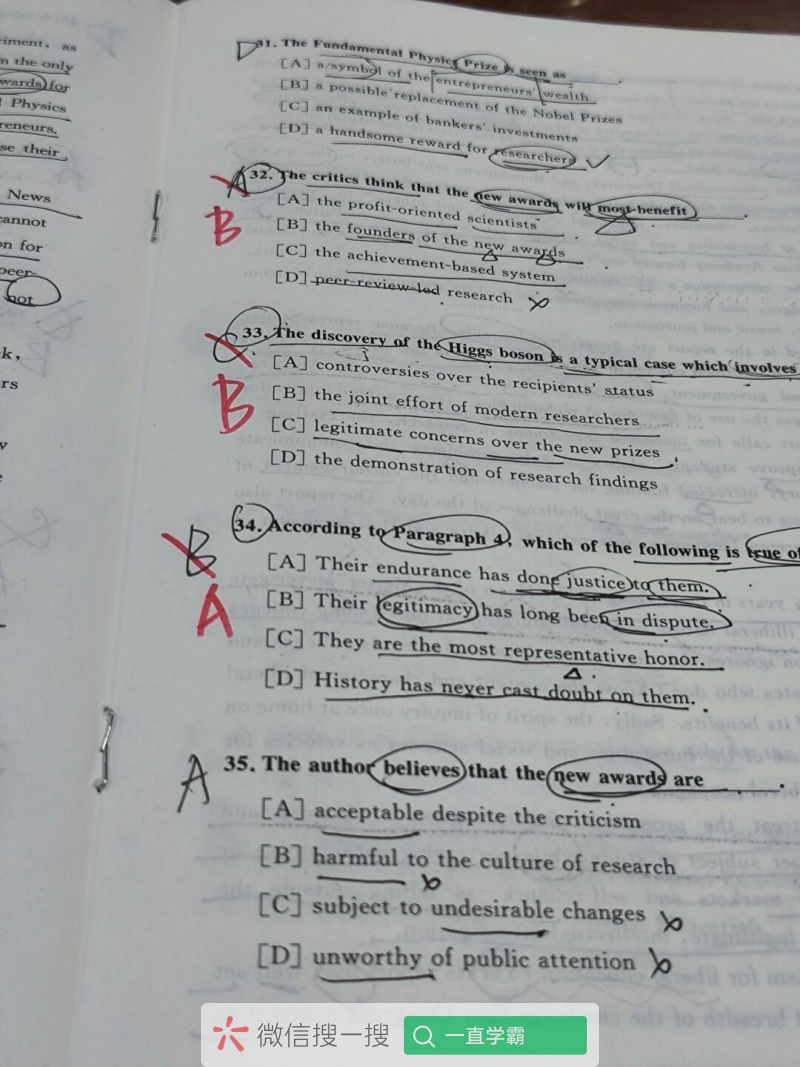 riment, as
n the only
wards) for
Physics
reneurs,
se their
News
cannot
on for
peer-
not
k,
rs
D 31. The Fundamental Physics Prize is seen as
[A] a symbol of the entrepreneurs' wealth
[B] a possible replacement of the Nobel Prizes
[C] an example of bankers' investments
[D] a handsome reward for researchers
A 32. The critics think that the new awards will most benefit
B
[A] the profit-oriented scientists
[B] the founders of the new awards
[C] the achievement-based system
[D] peer-review-led research
C 33. The discovery of the Higgs boson is a typical case which involves
B
[A] controversies over the recipients' status
[B] the joint effort of modern researchers
[C] legitimate concerns over the new prizes
[D] the demonstration of research findings
B 34. According to Paragraph 4, which of the following is true of
A
[A] Their endurance has done justice to them.
[B] Their legitimacy has long been in dispute.
[C] They are the most representative honor.
[D] History has never cast doubt on them.
A 35. The author believes that the new awards are
[A] acceptable despite the criticism
[B] harmful to the culture of research
[C] subject to undesirable changes
[D] unworthy of public attention
微信搜一搜 一直学霸